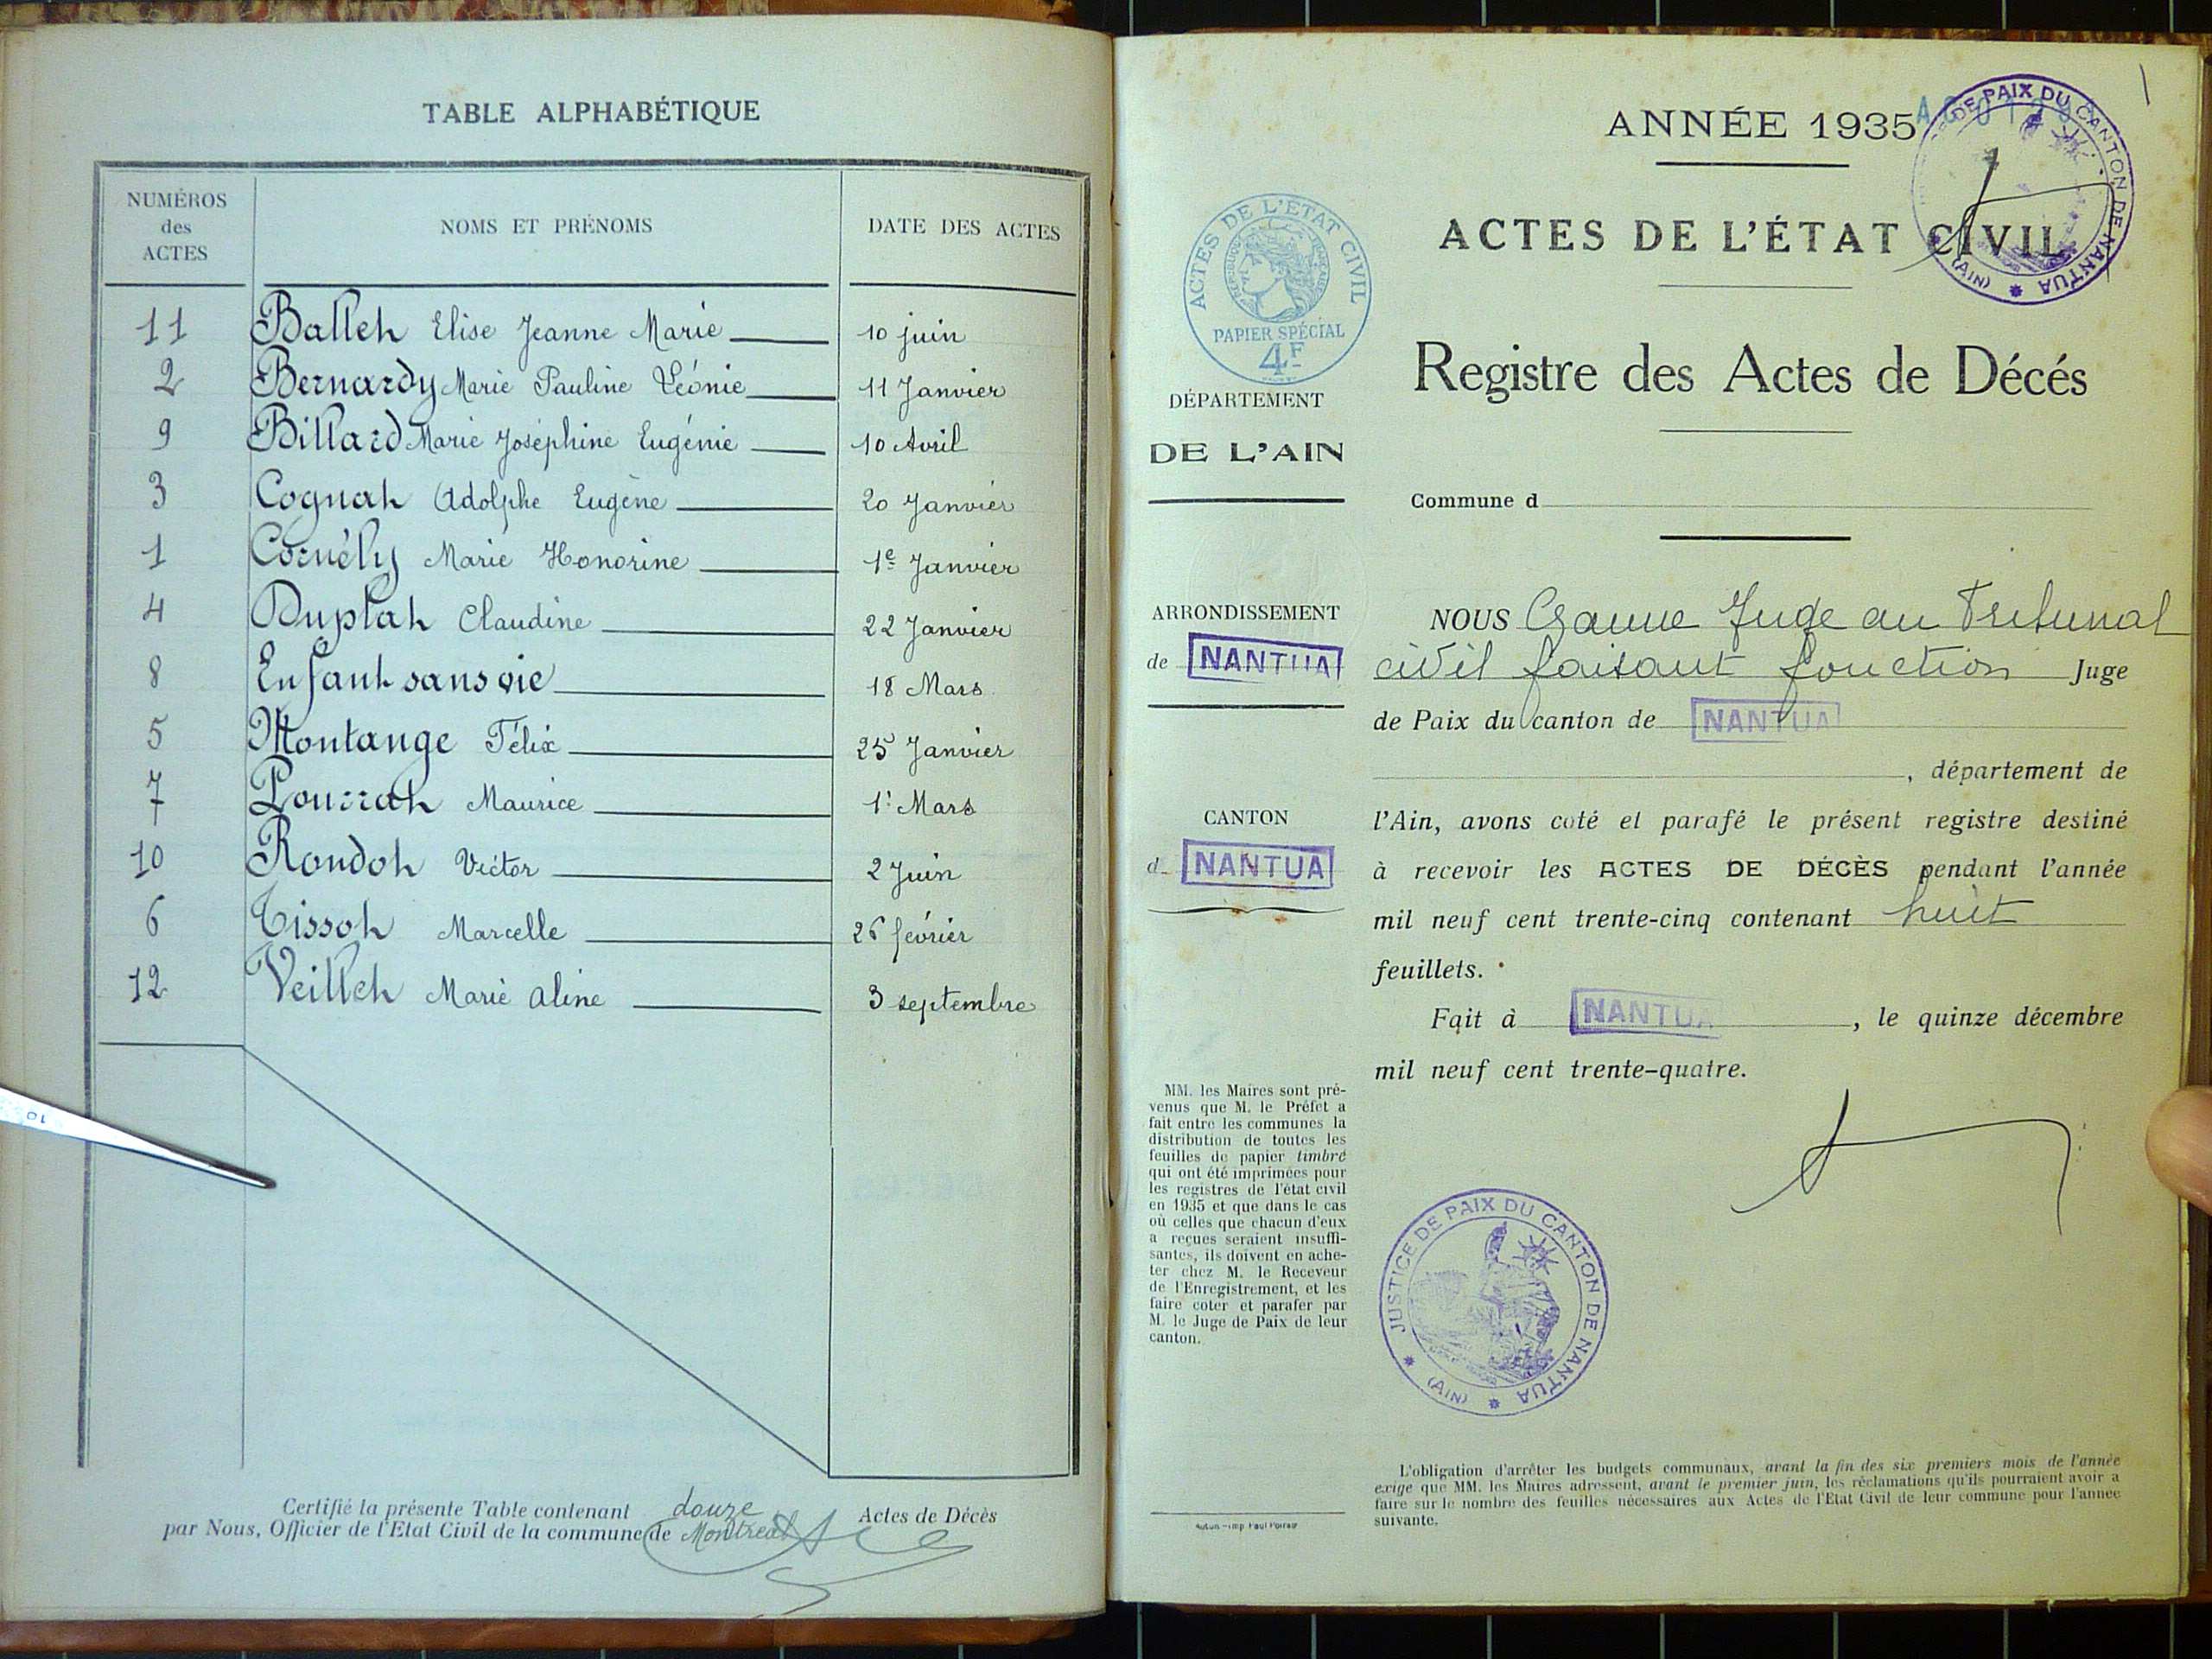 TABLE ALPHABÉTIQUE
NUMÉROS des ACTES NOMS ET PRÉNOMS DATE DES ACTES
11 Ballet Elise Jeanne Marie 10 juin
2 Bernardy Marie Pauline Léonie 11 Janvier
9 Billard Marie Joséphine Eugénie 10 Avril
3 Cognat Adolphe Eugène 20 Janvier
1 Cornély Marie Honorine 1e Janvier
4 Duplat Claudine 22 Janvier
8 Enfant sans vie 18 Mars
5 Montange Félix 25 Janvier
7 Pourrat Maurice 1: Mars
10 Rondot Victor 2 Juin
6 Tissot Marcelle 26 février
12 Veillet Marie Aline 3 septembre
Certifié la présente Table contenant douze Actes de Décès
par Nous, Officier de l'Etat Civil de la commune de Montréal
ANNÉE 1935
ACTES DE L'ÉTAT CIVIL
Registre des Actes de Décés
Commune d
ACTES DE L'ÉTAT CIVIL
PAPIER SPÉCIAL
4F
DÉPARTEMENT
DE L'AIN
ARRONDISSEMENT
de NANTUA
CANTON
d NANTUA
MM. les Maires sont pré-
venus que M. le Préfet a
fait entre les communes la
distribution de toutes les
feuilles de papier timbré
qui ont été imprimées pour
les registres de l'état civil
en 1935 et que dans le cas
où celles que chacun d'eux
a reçues seraient insuffi-
santes, ils doivent en ache-
ter chez M. le Receveur
de l'Enregistrement, et les
faire coter et parafer par
M. le Juge de Paix de leur
canton.
Autun - Imp. Paul Poirson
NOUS Juge au Tribunal
civil faisant fonction Juge
de Paix du canton de NANTUA
, département de
l'Ain, avons coté et parafé le présent registre destiné
à recevoir les ACTES DE DÉCÈS pendant l'année
mil neuf cent trente-cinq contenant huit
feuillets.
Fait à NANTUA, le quinze décembre
mil neuf cent trente-quatre.
DE PAIX DU CANTON DE NANTUA
(AIN)
JUSTICE DE PAIX DU CANTON DE NANTUA
(AIN)
L'obligation d'arrêter les budgets communaux, avant la fin des six premiers mois de l'année
exige que MM. les Maires adressent, avant le premier juin, les réclamations qu'ils pourraient avoir a
faire sur le nombre des feuilles nécessaires aux Actes de l'Etat Civil de leur commune pour l'année
suivante.